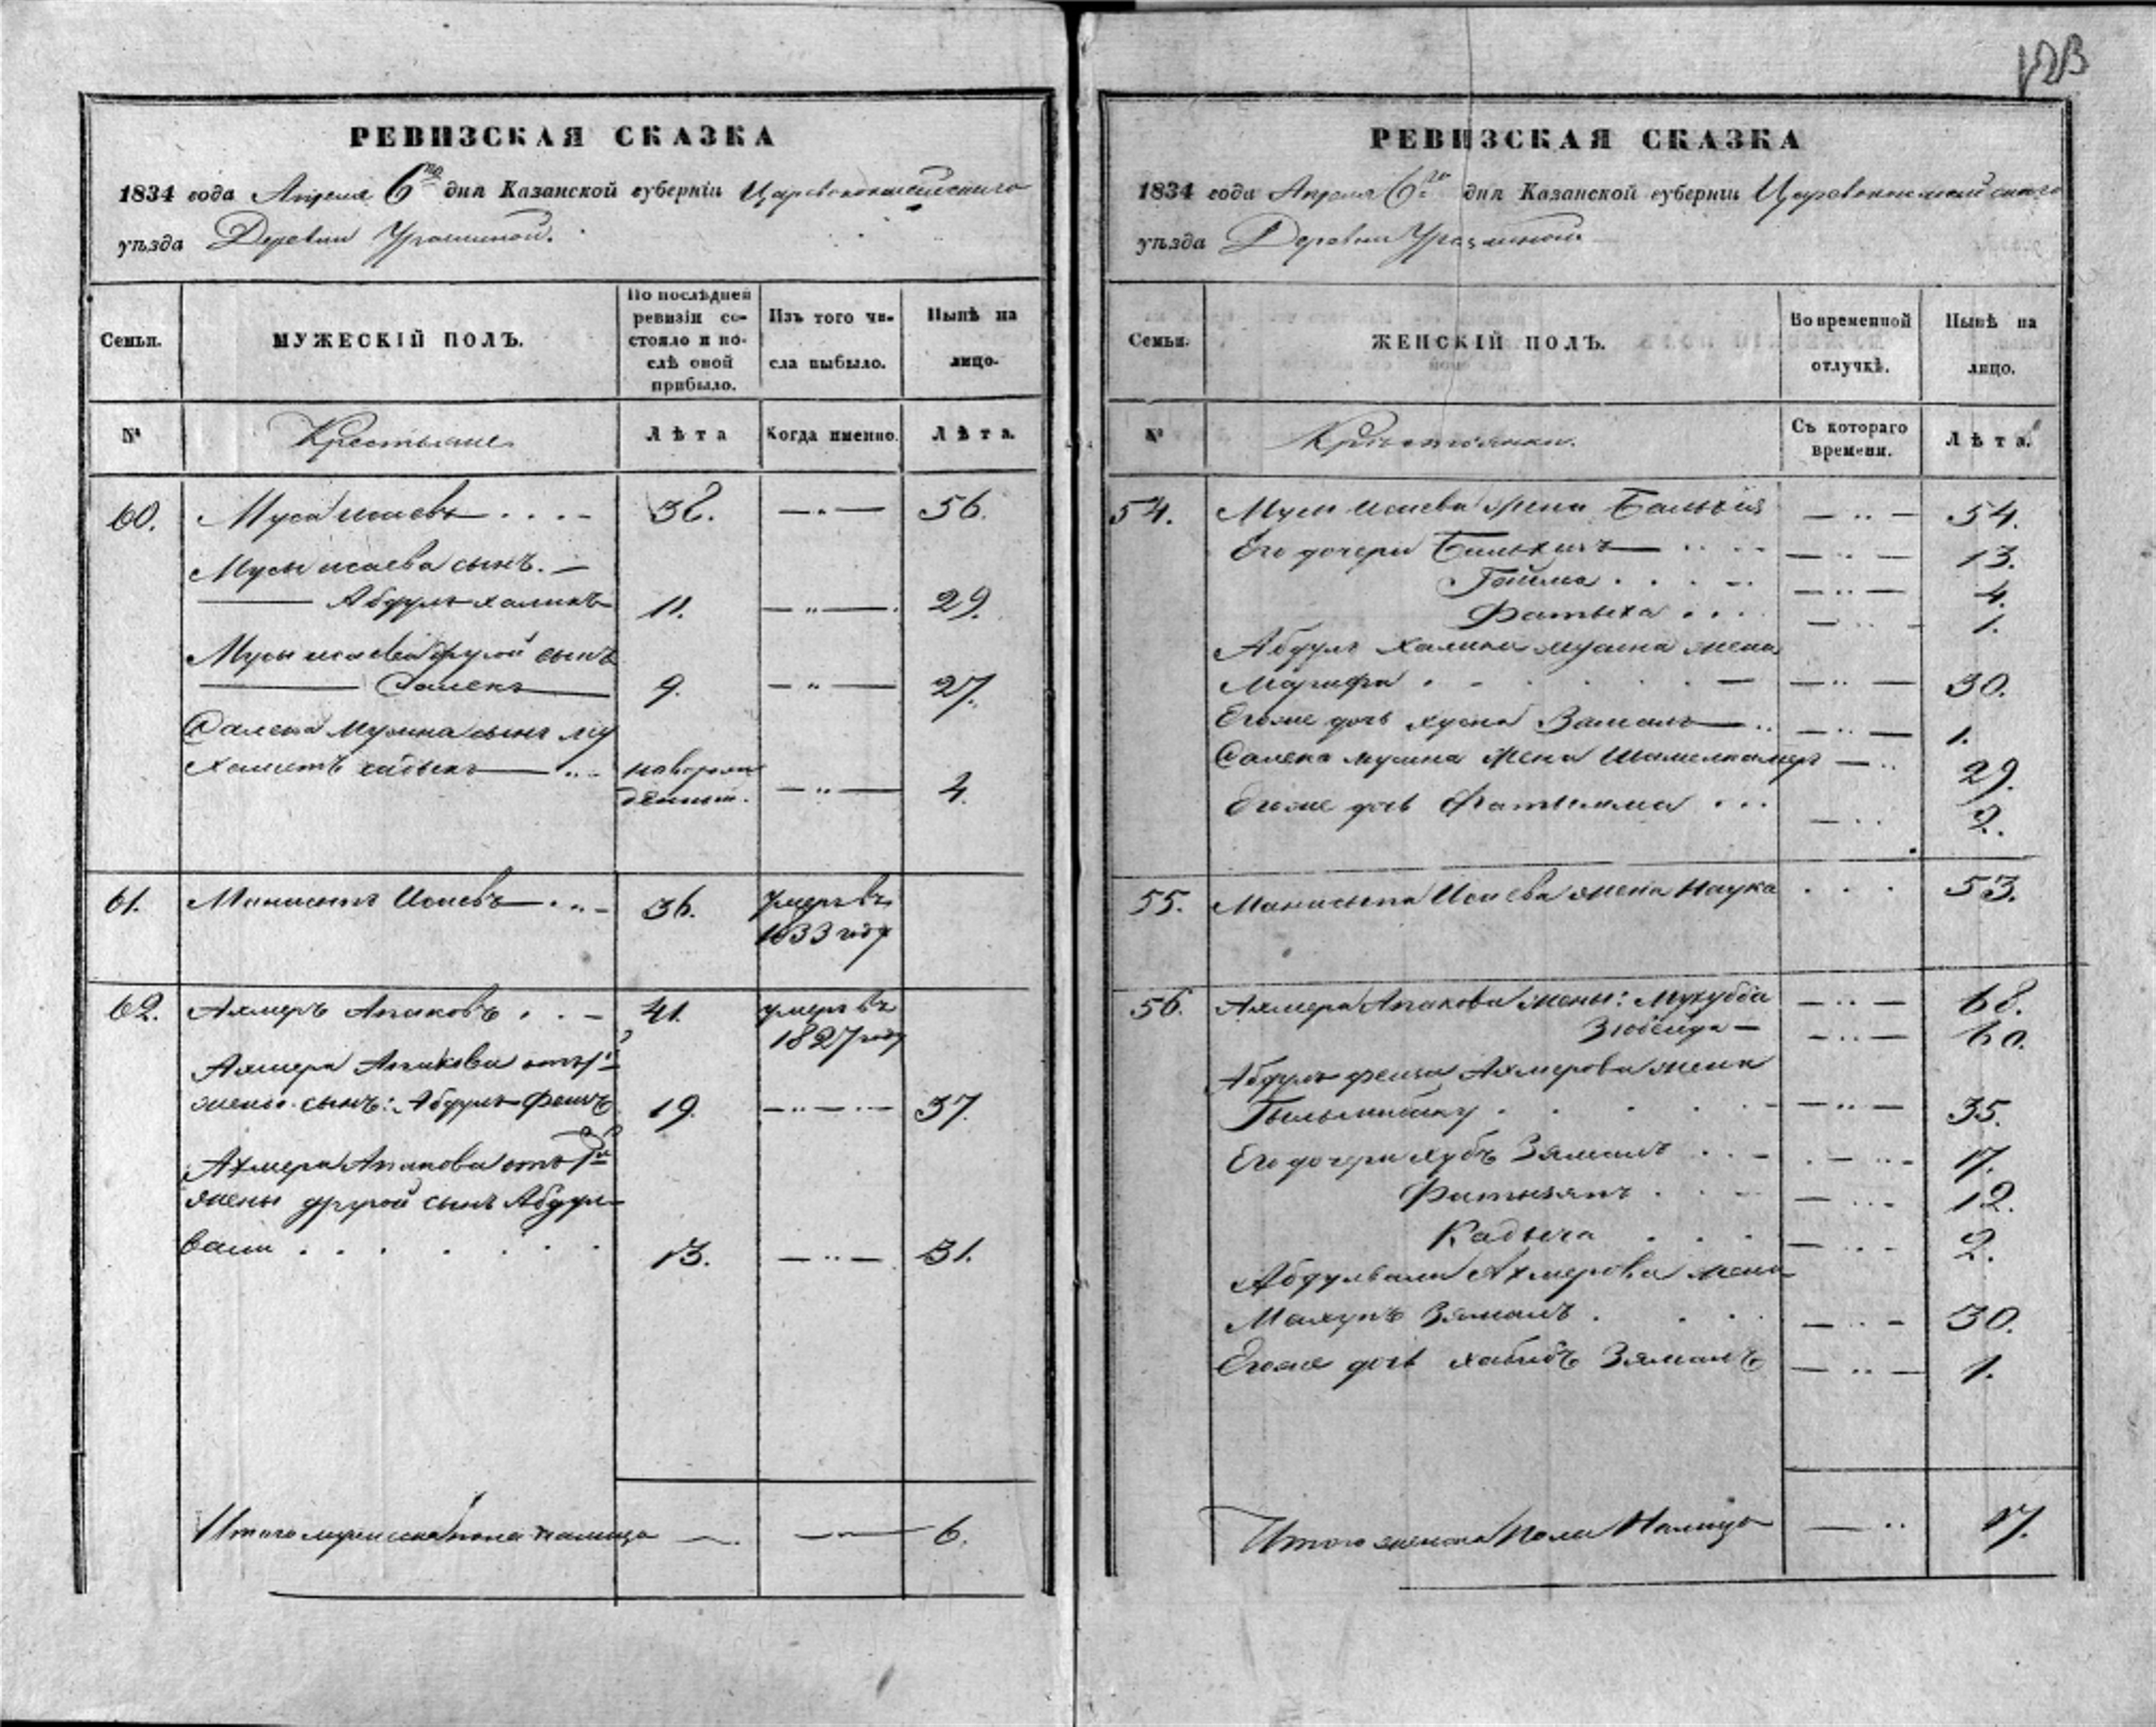 123
РЕВИЗСКАЯ СКАЗКА
1834 года Апреля 6го дня Казанской губерніи Царевококшайскаго
уѣзда Деревни Уразлиной.
Семьи.
МУЖЕСКІЙ ПОЛЪ.
По послѣдней ревизіи со-
стояло и по-
слѣ оной
прибыло.
Изъ того чи-
сла выбыло.
Нынѣ на
лицо.
№
Крестьяне
Лѣта
Когда именно.
Лѣта.
60. Муса Исаевъ . . . . 38. — 56.
Мусы Исаева сынъ. —
Абдулъ Халикъ 11. — 29.
Мусы Исаева другой сынъ
Салекъ 9. — 27.
Салека Мусина сынъ Му
хаметъ Садыкъ новорож
денный. — 4.
61. Исаевъ . . . 36. умеръ въ
1833 году
62. Ахмеръ Апаковъ . . — 41. умеръ въ
1827 году
Ахмера Апакова отъ 1й
жены сынъ: Абдулъ 19. — 37.
Ахмера Апакова отъ
жены другой сынъ Абдул
вали . . . . . . 13. — 31.
Итого мужеска пола налицо — — 6.
РЕВИЗСКАЯ СКАЗКА
1834 года Апреля 6го дня Казанской губерніи Царевококшайскаго
уѣзда Деревни Уразлиной
Семьи.
ЖЕНСКІЙ ПОЛЪ.
Во временной
отлучкѣ.
Нынѣ на
лицо.
№
Крестьянки.
Съ котораго
времени.
Лѣта.
54. Мусы Исаева жена — 54.
Его дочери — 13.
. . . . — 4.
Фатыха . . . — 1.
Абдулъ Халика Мусина жена
Магифа . — 30.
Егоже дочь Хусна Замалъ — 1.
Салека Мусина жена Шамелкамеръ — 29.
Егоже дочь Фатыма . . . — 2.
55. Исаева жена Наука . . . 53.
56. Ахмера Апакова жены: — 68.
Зюбейда — — 60.
Абдулъ Ахмерова жена
. . . . — 35.
Его дочери Хубъ Зямалъ . . — 17.
. . — 12.
Кадыча . . . — 2.
Абдулвали Ахмерова жена
Махупъ Зямалъ . . . — 30.
Егоже дочь Хабибъ Зямалъ — 1.
Итого женска пола налицо — 17.